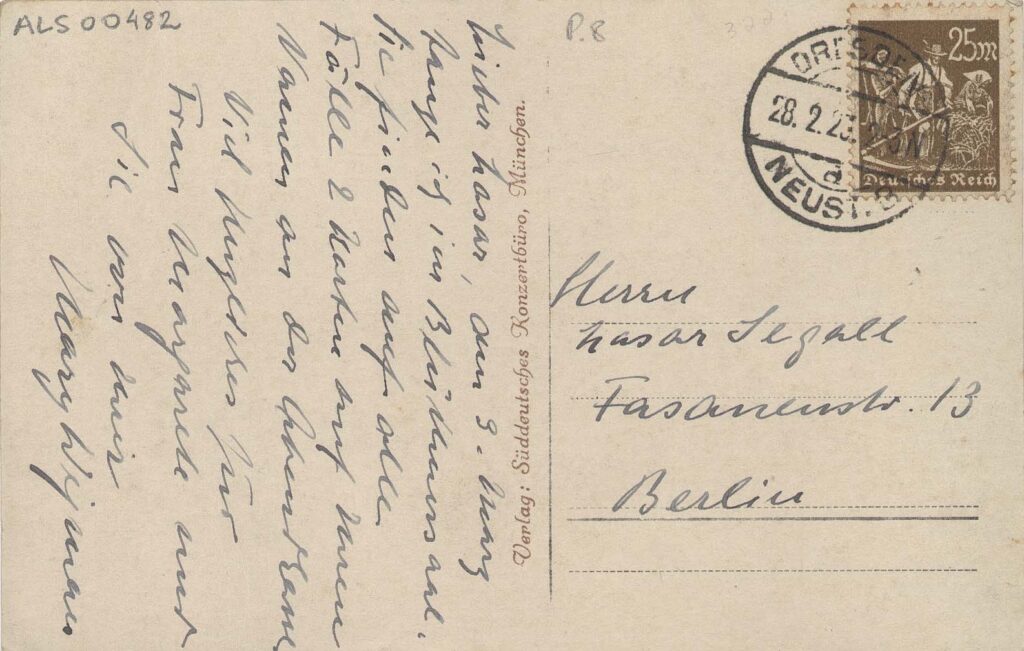 ALS 00482
P. 8
25M
Deutsches Reich
DRESDEN
28. 2. 23.
NEUST.
Lieber Lasar, am 3. März
tanze ich im Blüthnersaal.
Sie finden auf alle
Fälle 2 Karten auf Ihren
Namen an der Abendkasse
Viel Herzliches für
Frau Margrete und
Sie von mir
Mary Wigman
Verlag: Süddeutsches Konzertbüro, München.
Herrn
Lasar Segall
Fasanenstr. 13
Berlin